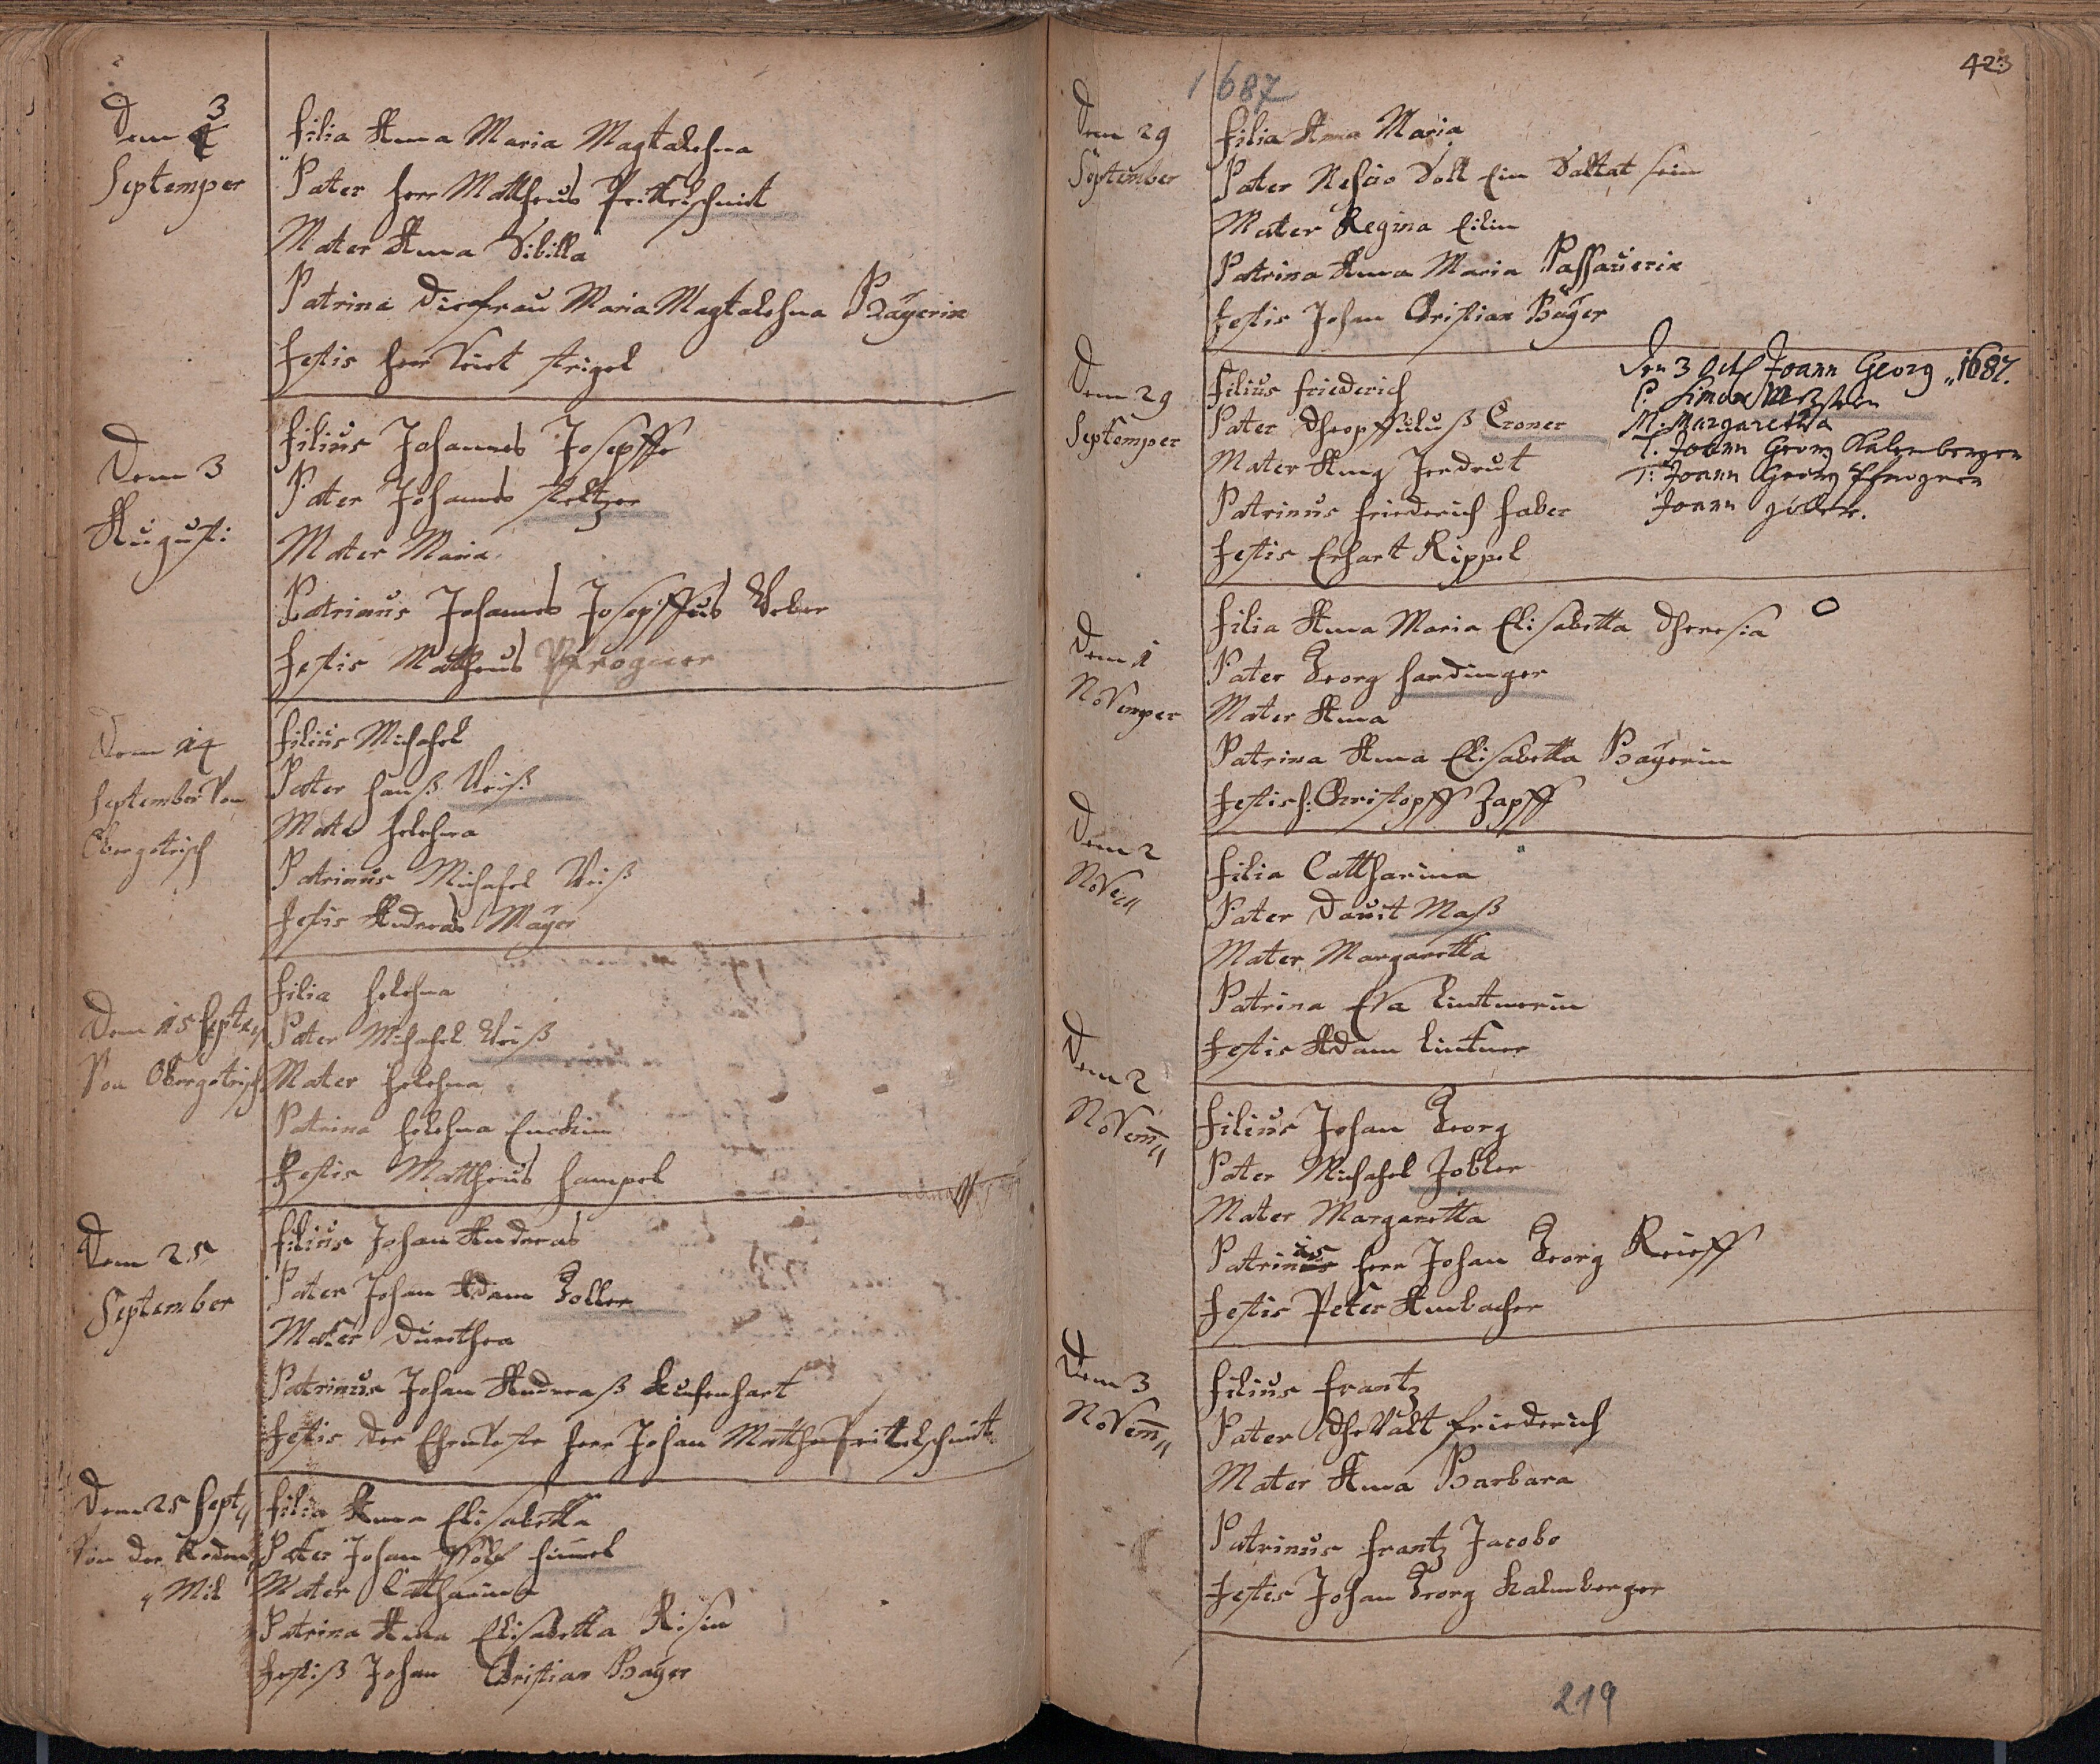 Dem 3
Septemper
Filia Anna Maria Magtalehna
Pater Herr Mattheus Prittelschmit
Mater Anna Sibilla
Patrina Die frau Maria Magtalehna Bäÿerin
Testis Herr Veict Strigel
Dem 3
Augusti
Filius Johannes Josepffe
Pater Johannes Steltzer
Mater Maria
Patrinus Johannes Josepffus Weber
Testis Mattheus Progner
Dem 14
September Von
Obergetrisch
Filius Michahel
Pater Hanß Weiß
Mater Helehna
Patrinus Michahel Weiß
Testis Anderas Maÿer
Dem 15 Septe
Von Obergetrisch
Filia Helehna
Pater Michahel Weiß
Mater Helehna
Patrina Helehna
Testis Mattheus Hampel
Dem 25
September
Filius Johan Anderas
Pater Johan Adam Goller
Mater Durethea
Patrinus Johan Anderaß Kuhenhart
Testis Der Ehrnveste Herr Johan Matthe Prittelschmit
Dem 25 Sept
Von der Roden
Mil
Filia Anna Elisabetta
Pater Johan Wolf Himel
Mater Catharina
Patrina Anna Elisabetta Risin
Testiß Johan Christian Baÿer
423
1687
Dem 29
September
Filia Anna Maria
Pater Nescio Soll Ein Soltat sein
Mater Regina Eilin
Patrina Anna Maria Passauerin
Testis Johan Christian Baÿer
Dem 29
Septemper
Filius Friederich
Pater Dheopffuluß Croner
Mater Anna Jerdrut
Patrinus Friederich Faber
Testis Erhart Rippel
Den 3 Oct Joann Georg 1687.
P. Simon
M. Margaretha
T. Joann Georg Kalenberger
T: Joann Georg
Joann
Dem 1
Novemper
Filia Anna Maria Elisabetta Dheresia
Pater Georg Hardinger
Mater Anna
Patrina Anna Elisabetta Baÿerin
Testis H: Christopff Zapff
Dem 2
Novem
Filia Cattharina
Pater Dauit Maß
Mater Margaretta
Patrina Eva Lintnerin
Testis Adam Lintner
Dem 2
Novem
Filius Johan Georg
Pater Michahel Zobler
Mater Margaretta
Patrinus Herr Johan Georg Reieff
Testis Peter Ambacher
Dem 3
Novem
Filius Frantz
Pater Dhevalt Friederich
Mater Anna Barbara
Patrinus Frantz Jacobe
Testes Johan Georg Kalmberger
219